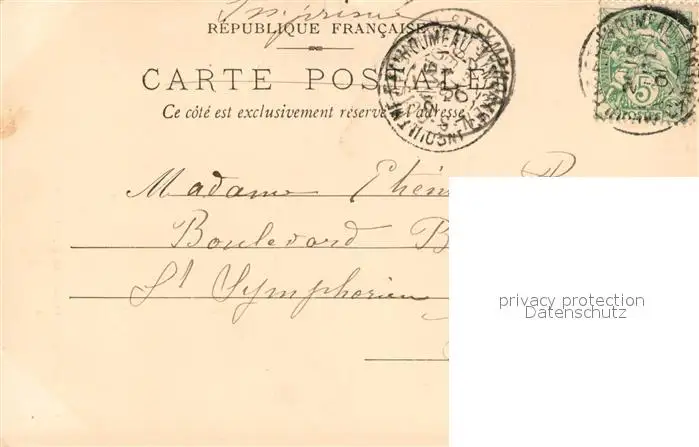 Imprimé
RÉPUBLIQUE FRANÇAISE
CARTE POSTALE
Ce côté est exclusivement réservé à l'adresse
ST SYMPHORIEN
5
Madame
Boulevard B
St Symphorien
privacy protection
Datenschutz